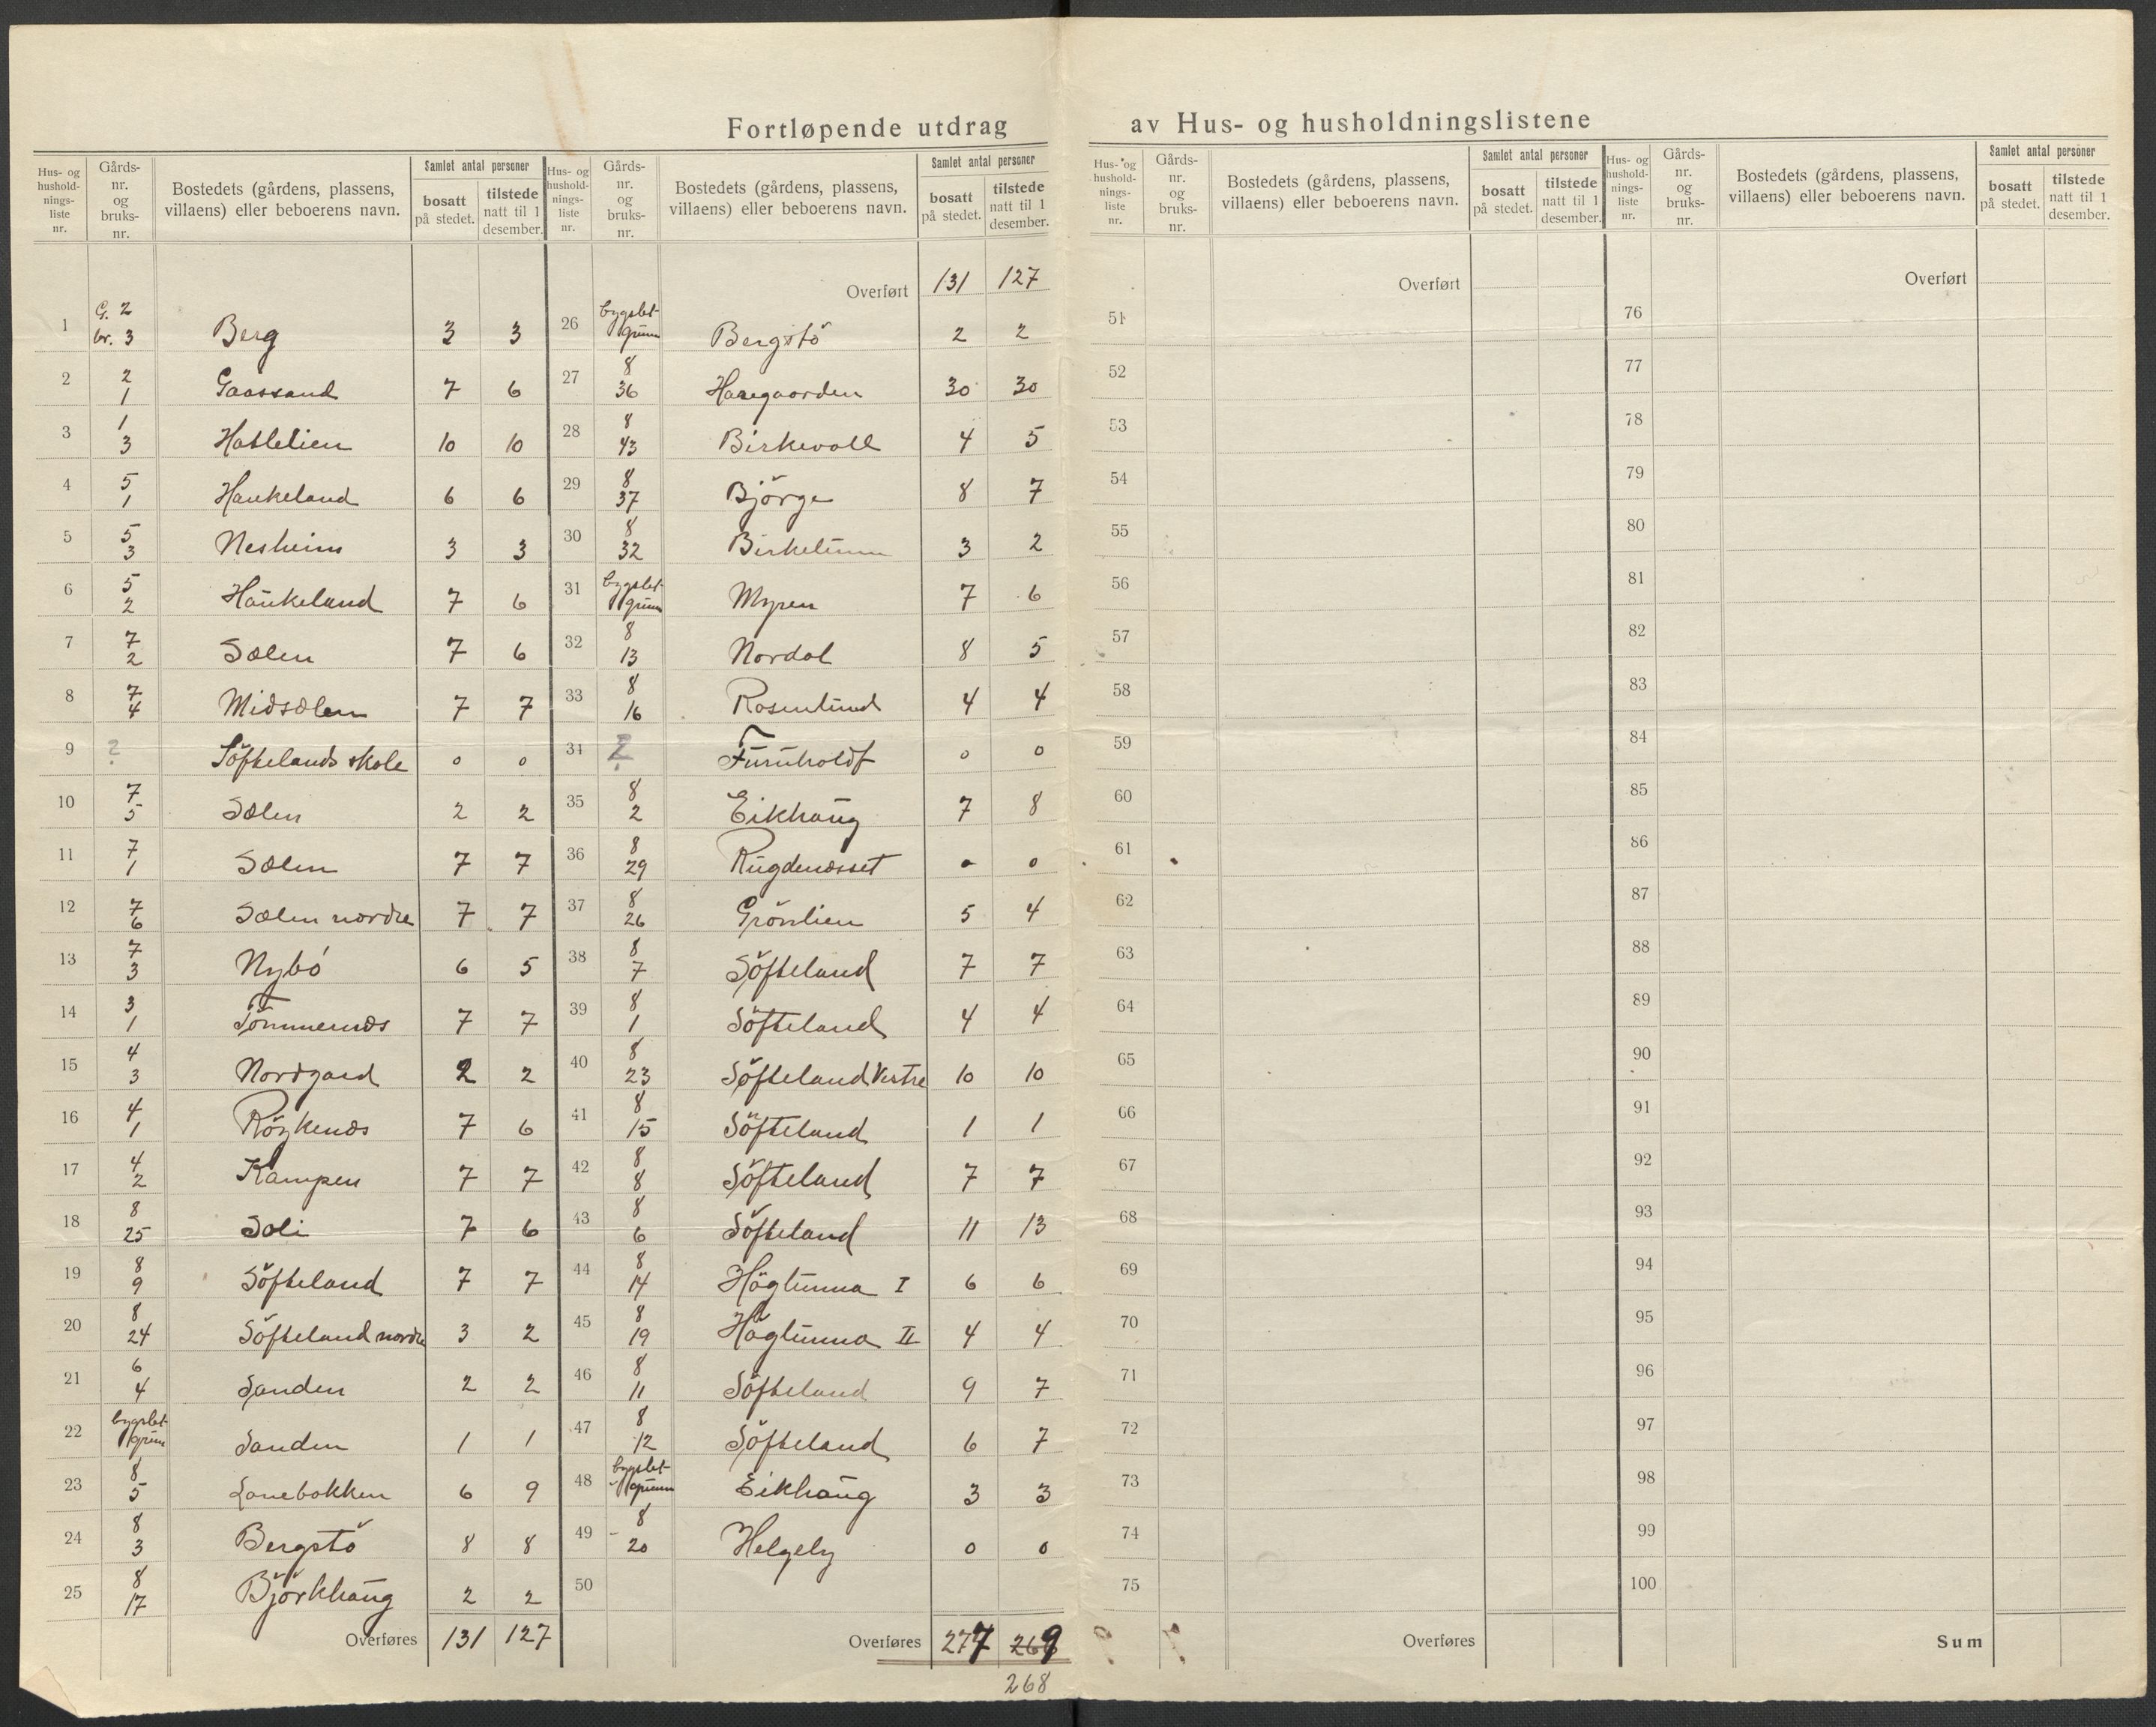 Fortløpende utdrag av Hus- og husholdningslistene
Hus- og hushold-nings-liste nr. Gårds-nr. og bruks-nr. Bostedets (gårdens, plassens, villaens) eller beboerens navn. Samlet antal personer bosatt på stedet. tilstede natt til 1 desember.
1 G. 2 br. 3 Berg 3 3
2 2 1 Gaassand 7 6
3 1 3 Hatlelien 10 10
4 5 1 Haukeland 6 6
5 5 3 Nesheim 3 3
6 5 2 Haukeland 7 6
7 7 2 Sælen 7 6
8 7 4 Midsælen 7 7
9 ? Söftelands skole 0 0
10 7 5 Sælen 2 2
11 7 1 Sælen 7 7
12 7 6 Sælen nordre 7 7
13 7 3 Nybö 6 5
14 3 1 Tömmernæs 7 7
15 4 3 Nordgard 2 2
16 4 1 Röykenæs 7 6
17 4 2 Kampen 7 7
18 8 25 Soli 7 6
19 8 9 Söfteland 7 7
20 8 24 Söfteland nordre 3 2
21 6 4 Sanden 2 2
22 bygslet-grunn Sanden 1 1
23 8 5 Lonebakken 6 9
24 8 3 Bergstö 8 8
25 8 17 Björkhaug 2 2
Overføres 131 127
Hus- og hushold-nings-liste nr. Gårds-nr. og bruks-nr. Bostedets (gårdens, plassens, villaens) eller beboerens navn. Samlet antal personer bosatt på stedet. tilstede natt til 1 desember.
Overført 131 127
26 bygslet-grunn Bergstö 2 2
27 8 36 Haregaarden 30 30
28 8 43 Birkevoll 4 5
29 8 37 Björge 8 7
30 8 32 Birkelunn 3 2
31 bygslet-grunn Myren 7 6
32 8 13 Nordal 8 5
33 8 16 Rosenlund 4 4
34 ? Furuholdt 0 0
35 8 2 Eikhaug 7 8
36 8 29 Rugdenæsset 0 0
37 8 26 Grönlien 5 4
38 8 7 Söfteland 7 7
39 8 1 Söfteland 4 4
40 8 23 Söfteland Vestre 10 10
41 8 15 Söfteland 1 1
42 8 8 Söfteland 7 7
43 8 6 Söfteland 11 13
44 8 14 Höglunna I 6 6
45 8 19 Höglunna II 4 4
46 8 11 Söfteland 9 7
47 8 12 Söfteland 6 7
48 bygslet-grunn Eikhaug 3 3
49 8 20 Helgely 0 0
50
Overføres 277 269
268
Hus- og hushold-nings-liste nr. Gårds-nr. og bruks-nr. Bostedets (gårdens, plassens, villaens) eller beboerens navn. Samlet antal personer bosatt på stedet. tilstede natt til 1 desember.
Overført
51
52
53
54
55
56
57
58
59
60
61
62
63
64
65
66
67
68
69
70
71
72
73
74
75
Overføres
Hus- og hushold-nings-liste nr. Gårds-nr. og bruks-nr. Bostedets (gårdens, plassens, villaens) eller beboerens navn. Samlet antal personer bosatt på stedet. tilstede natt til 1 desember.
Overført
76
77
78
79
80
81
82
83
84
85
86
87
88
89
90
91
92
93
94
95
96
97
98
99
100
Sum